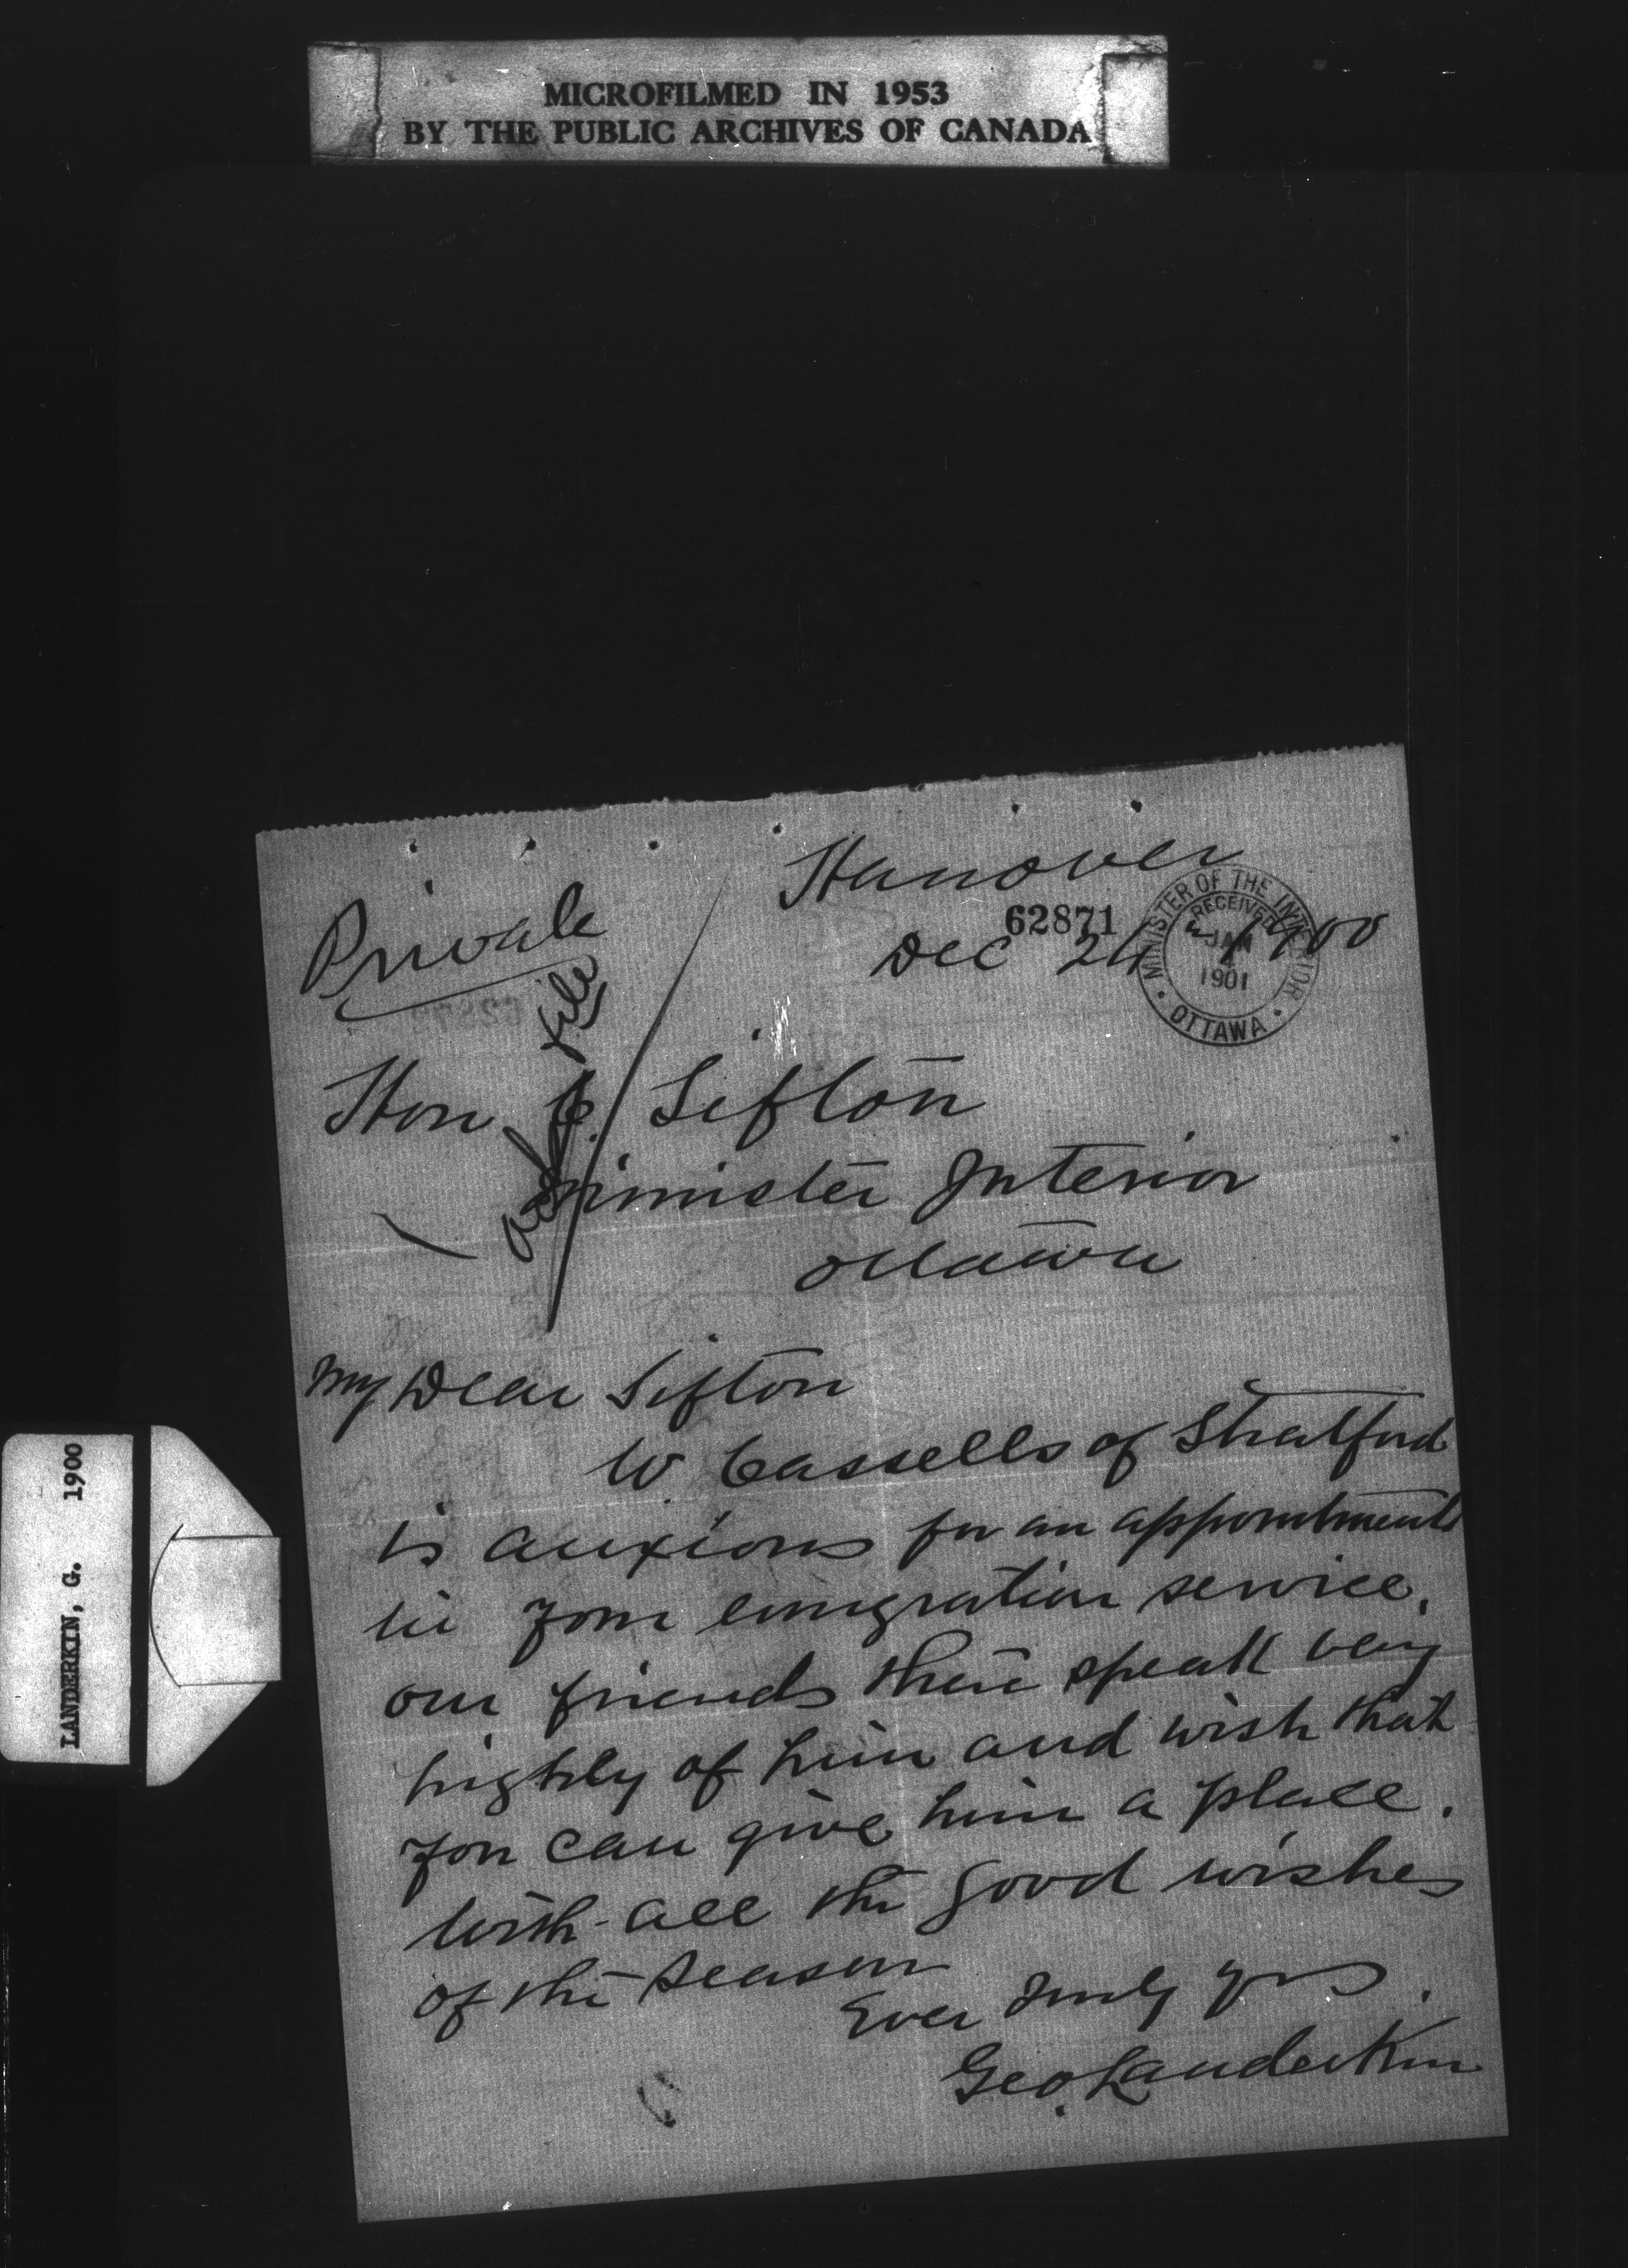 MICROFILMED IN 1953
BY THE PUBLIC ARCHIVES OF CANADA
LANDERKIN, G. 1900
Hanover
Private
62871
Dec 24 1900
MINISTER OF THE INTERIOR
RECEIVED
JAN
1901
OTTAWA
file
Hon C. Sifton
Minister Interior
Ottawa
My Dear Sifton
W. Cassells of Stratford
is anxious for an appointment
in your emigration service.
our friends there speak very
highly of him and wish that
you can give him a place.
With all the good wishes
of the season
Ever truly yrs.
Geo. Landerkin